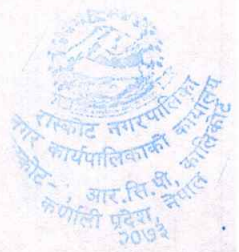 रास्कोट नगरपालिका
नगर कार्यपालिकाको कार्यालय
स्कोट - , आर.सि.पी, कालिकोट
कर्णाली प्रदेश, नेपाल
२०७३